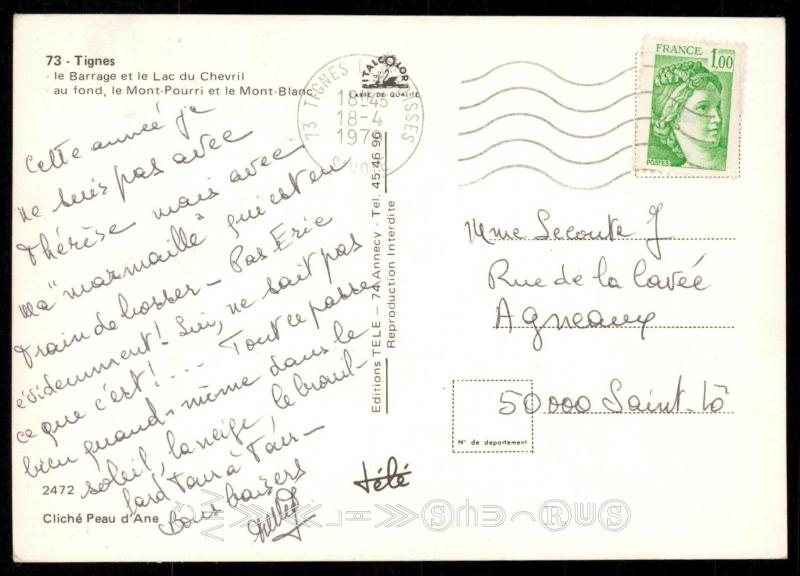 73 - Tignes
- le Barrage et le Lac du Chevril
au fond, le Mont-Pourri et le Mont-Blanc
Cette année je
ne suis pas avec
Thérèse mais avec
ma "marmaille" qui est en
train de bosser - Pas Eric
évidemment! Lui, ne sait pas
ce que c'est!... Tout ce passe
bien quand-même dans le
soleil, la neige, le brouil-
lard Tour à Tour -
Bons baisers
2472
Cliché Peau d'Ane
ITALCOLOR
CARTE DE QUALITÉ
73 TIGNES
18-45
18-4
Editions TELE - 74 Annecy - Tel. 45 46 96
Reproduction Interdite
télé
FRANCE
1,00
POSTES
Mme Lecoute J
Rue de la Cavée
Agneaux
50000 Saint-Lô
N° de departement